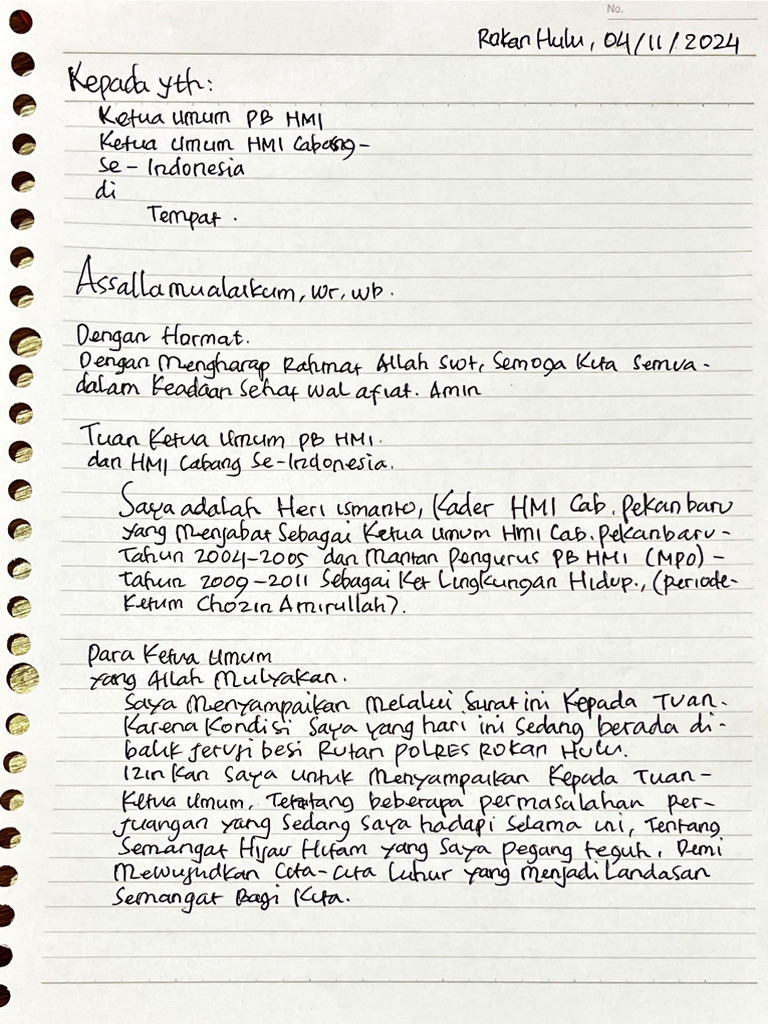 No.
Rokan Hulu, 04/11/2024
Kepada yth:
Ketua umum PB HMI
Ketua umum HMI Cabang-
Se-Indonesia
di
Tempat.
Assallamualaikum, wr, wb.
Dengan Hormat.
Dengan Mengharap Rahmat Allah Swt, Semoga Kita Semua-
dalam Keadaan Sehat wal afiat. Amin
Tuan Ketua Umum PB HMI.
dan HMI Cabang Se-Indonesia.
Saya adalah Heri ismanto, Kader HMI Cab. Pekanbaru
yang Menjabat Sebagai Ketua umum HMI Cab. Pekanbaru-
Tahun 2004-2005 dan Mantan Pengurus PB HMI (MPO) -
tahun 2009-2011 Sebagai Ket Lingkungan Hidup., (periode-
Ketum Chozin Amirullah).
Para Ketua Umum
yang Allah Mulyakan.
Saya Menyampaikan Melalui Surat ini Kepada Tuan.
Karena Kondisi Saya yang hari ini Sedang berada di-
balik jeruji besi Rutan POLRES ROKAN HULU.
Izinkan Saya untuk Menyampaikan Kepada Tuan-
Ketua Umum, Tentang beberapa permasalahan per-
juangan yang Sedang Saya hadapi Selama ini, Tentang
Semangat Hijau Hitam yang Saya pegang teguh, Demi
Mewujudkan Cita-Cita Luhur yang menjadi Landasan
Semangat Bagi Kita.